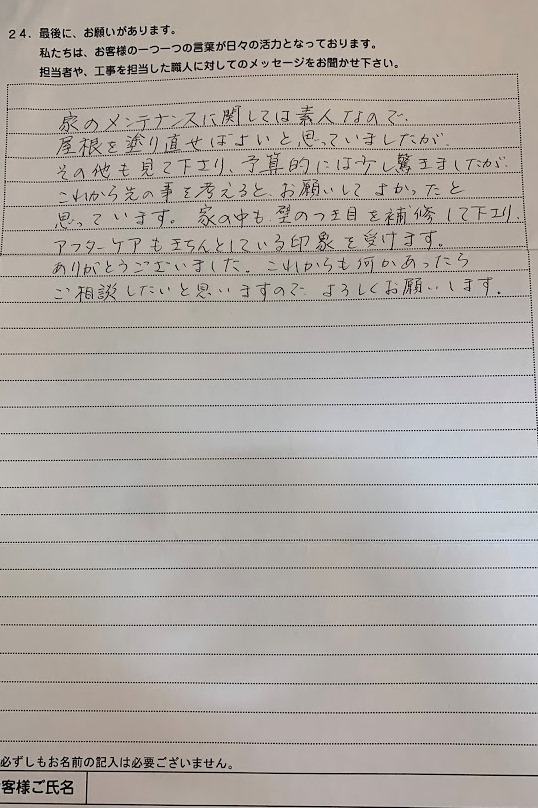 24．最後に、お願いがあります。
私たちは、お客様の一つ一つの言葉が日々の活力となっております。
担当者や、工事を担当した職人に対してのメッセージをお聞かせ下さい。
家のメンテナンスに関しては素人なので、
屋根を塗り直せばよいと思っていましたが、
その他も見て下さり、予算的には少し驚きましたが、
これから先の事を考えると、お願いして よかったと
思っています。 家の中も、壁のつぎ目を補修して下さり、
アフターケアもきちんとしている印象を受けます。
ありがとうございました。これからも何かあったら
ご相談したいと思いますので、よろしくお願いします。
必ずしもお名前の記入は必要ございません。
客様ご氏名